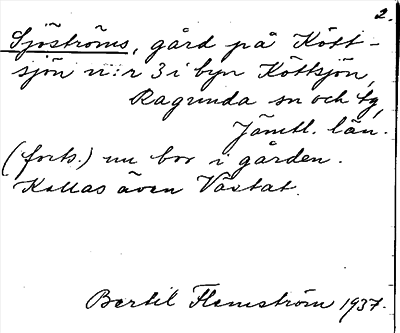 2.
Sjöströms, gård på Kött-
sjön n:r 3 i byn Köttsjön,
Ragunda sn och tg,
Jämtl. län.
(forts.) nu bor i gården.
Kallas även Västat.
Bertil Flemström 1937.